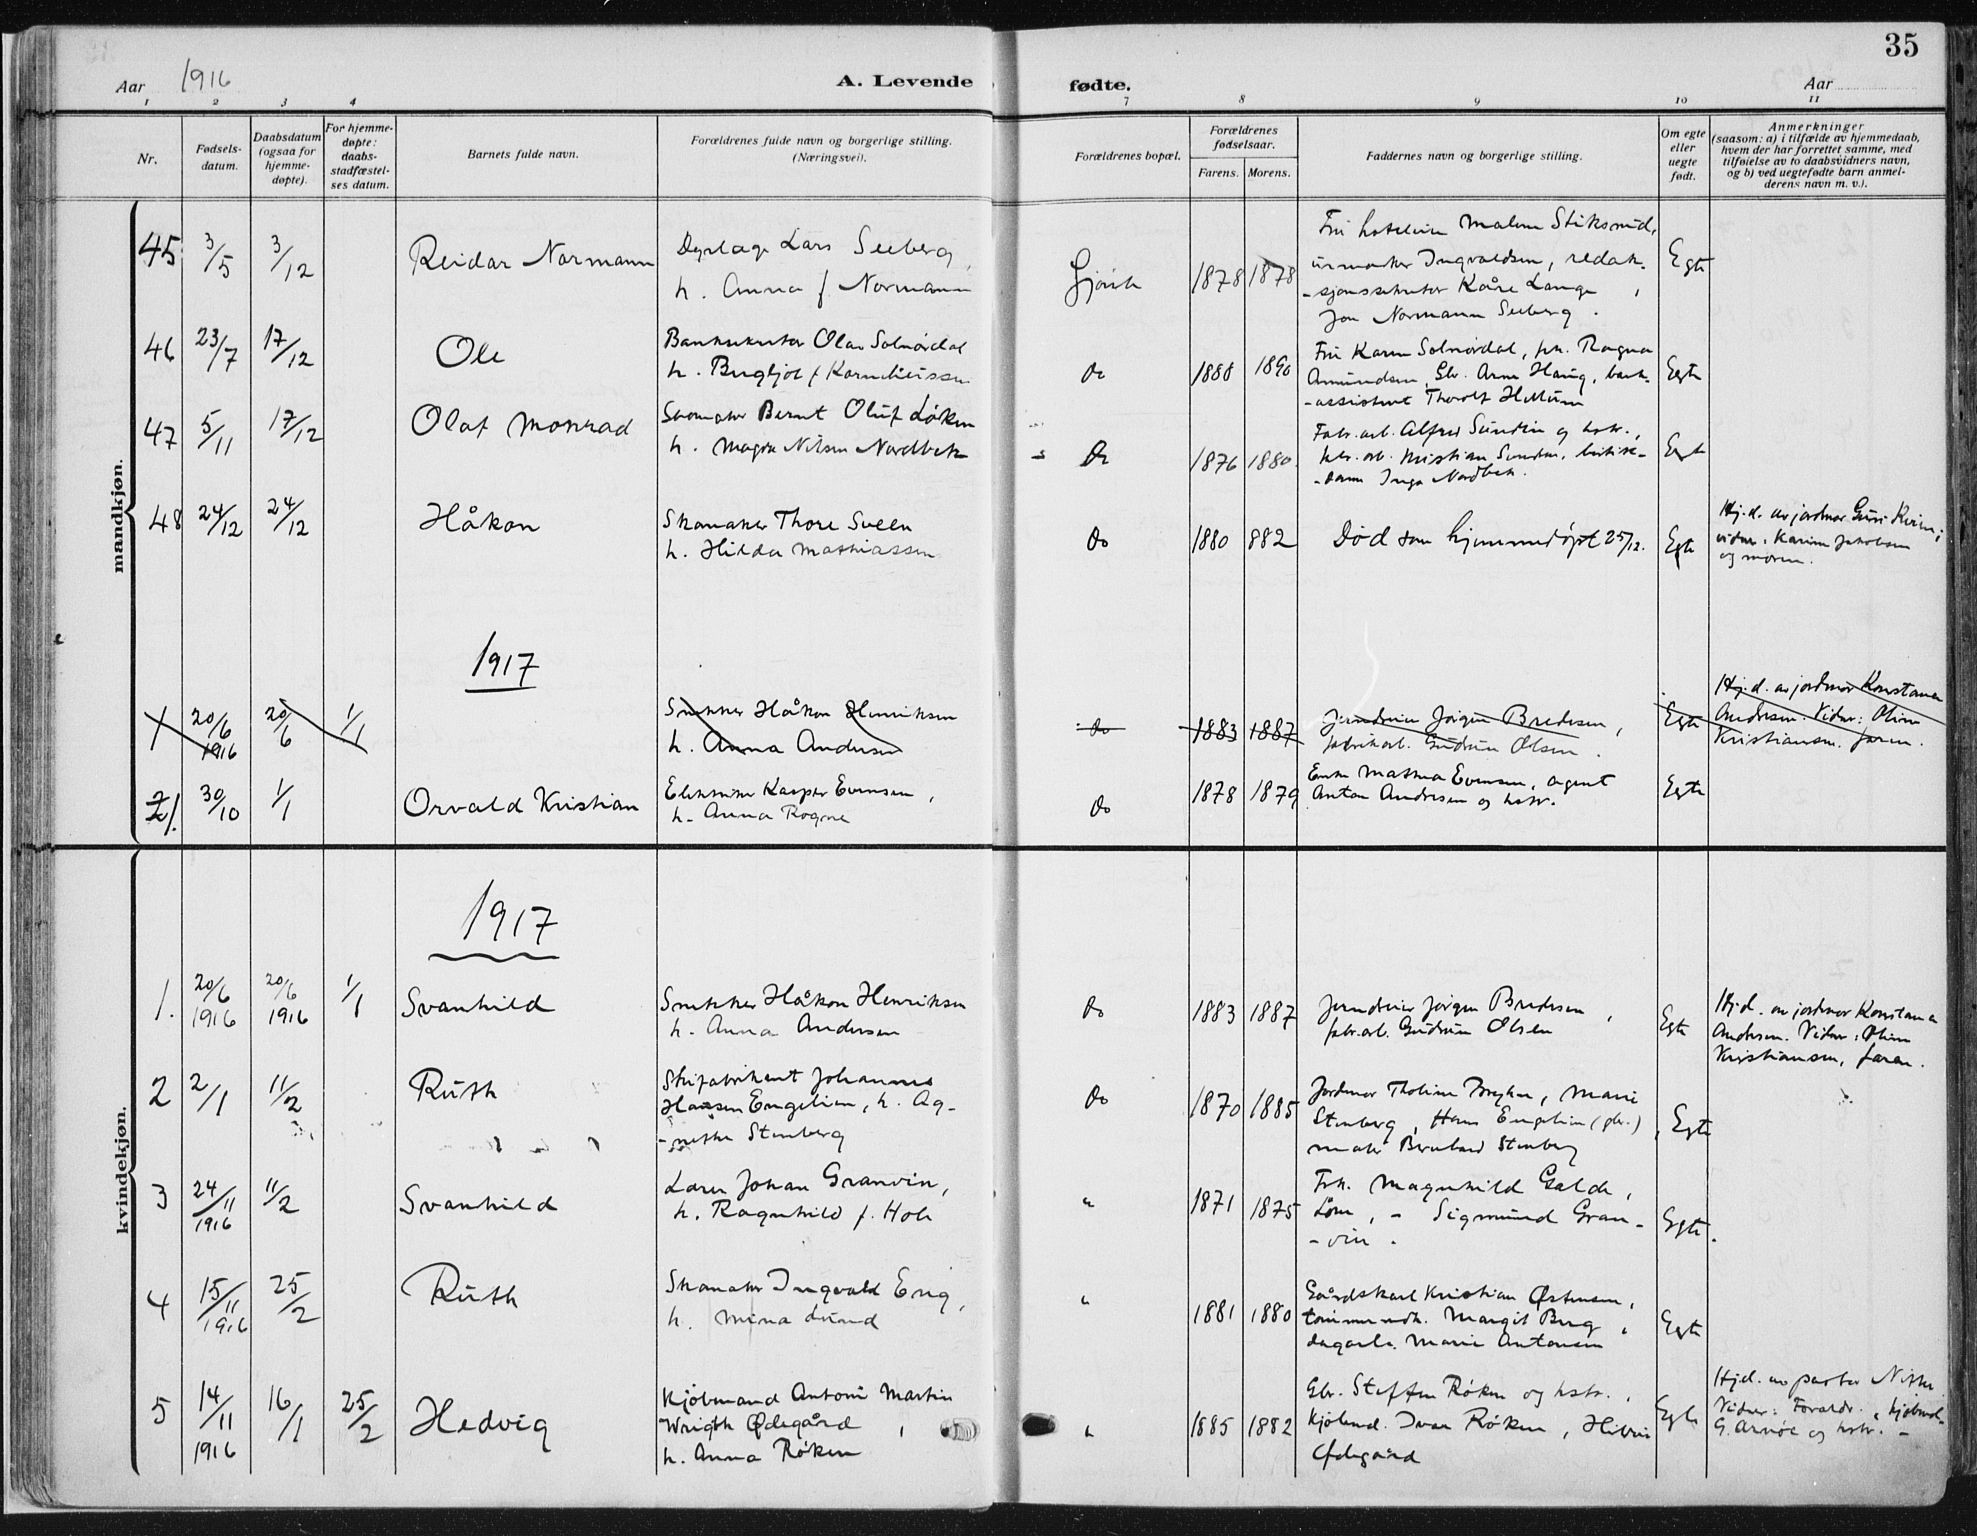 35
Aar 1916
A. Levende fødte.
Aar
1 2 3 4 7 8 9 10 11
Nr.
Fødsels-
datum.
Daabsdatum
(ogsaa for
hjemme-
døpte).
For hjemme-
døpte:
daabs-
stadfæstel-
ses datum.
Barnets fulde navn.
Forældrenes fulde navn og borgerlige stilling.
(Næringsvei).
Forældrenes bopæl.
Forældrenes
fødselsaar.
Farens. Morens.
Faddernes navn og borgerlige stilling.
Om egte
eller
uegte
født.
Anmerkninger
(saasom: a) i tilfælde av hjemmedaab,
hvem der har forrettet samme, med
tilføielse av to daabsvidners navn,
og b) ved uegtefødte barn anmel-
derens navn m. v.).
mandkjøn.
45 3/5 3/12 Reidar Normann
Lars Seeberg,
h. Anna f. Normann
Gjøvik 1878 1878
Fru Malene Stiksrud,
urmaker Ingvaldsen, redak-
-sjonssekretær Kåre Lange,
Jon Normann Seeberg.
Egte
46 23/7 17/12 Ole
Banksekretær Olav Solnørdal
h. Bergljot f. Korneliussen
do 1888 1890
Fru Karen Solnørdal, frk. Ragna
Amundsen, Gbr. Arne Haug, bank-
-assistent Thorolf Hellum
Egte
47 5/11 17/12 Olaf Monrad
Bernt Oluf Løken
h. Magda Nilsen Nordbek
do 1876 1880
Fabr.arb. Alfred Sundin og hstr.,
fabr.arb. Kristian Sunden, butikk-
-dame Inga Nordbek.
Egte
48 24/12 24/12 Håkon
Skomaker Thore Sveen
h. Hilda Mathiassen
do 1880 882
Død som hjemmedøpt 25/12.
Egte
Hj.d. av jordmor Guri Kvim;
vidner: Karen Jakobsen
og moren.
1917
1 20/6 1916 20/6 1/1
Snekker Håkon Henriksen
h. Anna Andersen
do 1883 1887
Jerndreier Jørgen Bredesen,
fabrikarb. Gudrun Olsen.
Egte
Hj.d. av jordmor Konstanse
Andersen. Vidner: Oline
Kristiansen. faren.
2 1. 30/10 1/1 Orvald Kristian
Kasper Evensen,
h. Anna Rogne
do 1878 1879
Enke Mathea Evensen, agent
Anton Andresen og hstr.
Egte
kvindekjøn.
1917
1. 20/6 1916 20/6 1916 1/1 Svanhild
Snekker Håkon Henriksen
h. Anna Andersen
do 1883 1887
Jerndreier Jørgen Bredesen,
fabr.arb. Gudrun Olsen
Egte
Hj.d. av jordmor Konstanse
Andersen. Vidner: Oline
Kristiansen, faren.
2 2/1 11/2 Ruth
Skifabrikant Johannes
Hansen Engelien, h. Ag-
-nethe Stenberg
do 1870 1885
Jordmor Tholine, Marie
Stenberg, Hans Engelien (gbr.)
maler Bernhard Stenberg
Egte
3 24/11 1916 11/2 Svanhild
Lærer Johan Granvin,
h. Ragnhild f. Hole
" 1871 1875
Frk. Magnhild Galde,
Lom, - Sigmund Gran-
-vin.
Egte.
4 15/11 1916 25/2 Ruth
Skomaker Ingvald Eng,
h. Mina Lund
" 1881 1880
Gårdskarl Kristian Østensen,
tømmermdh. Margit Berg,
dagarb. Marie Antonsen
Egte
5 14/11 1916 16/1 25/2 Hedvig
Kjøbmand Antoni Martin
Wrigth Ødegård,
h. Anna Røken
" 1885 1882
Gbr. Steffen Røken og hstr.,
kjøbmd. Ivar Røken,
Ødegård
Egte
Hj.d. av pastor
Vidner: Forældr., kjøbmd.
G. Arnøe og hstr. -